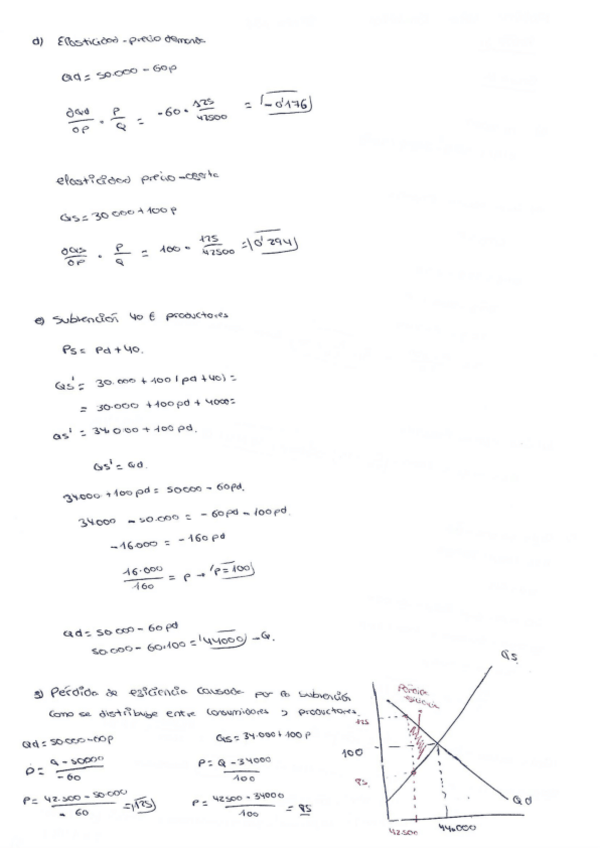 d) Elasticidad-precio demanda
Qd = 50.000 - 60p
∂Qd/∂P · P/Q = -60 · 125/42500 = -0'176
elasticidad precio-oferta
Qs = 30000 + 100p
∂Qs/∂P · P/Q = 100 · 125/42500 = 0'294
e) Subvención 40 € productores
Ps = Pd + 40.
Qs' = 30.000 + 100 (pd + 40) =
= 30.000 + 100pd + 4000 =
Qs' = 34.000 + 100 pd.
Qs' = Qd.
34000 + 100 pd = 50000 - 60pd.
34000 - 50.000 = -60pd - 100pd.
-16.000 = -160 pd
16.000/160 = P → P = 100
Qd = 50 000 - 60 pd
50.000 - 60·100 = 44000 → Q.
g) Pérdida de eficiencia causada por la subvención
Como se distribuye entre consumidores y productores
Qd = 50000 - 60p
P = Q - 50000/-60
P = 42.500 - 50.000/-60 = 125
Qs = 34.000 + 100 p
P = Q - 34000/100
P = 42500 - 34000/100 = 85
Qs
Pérdida eficiencia
125
100
85
Qd
42500
44.000